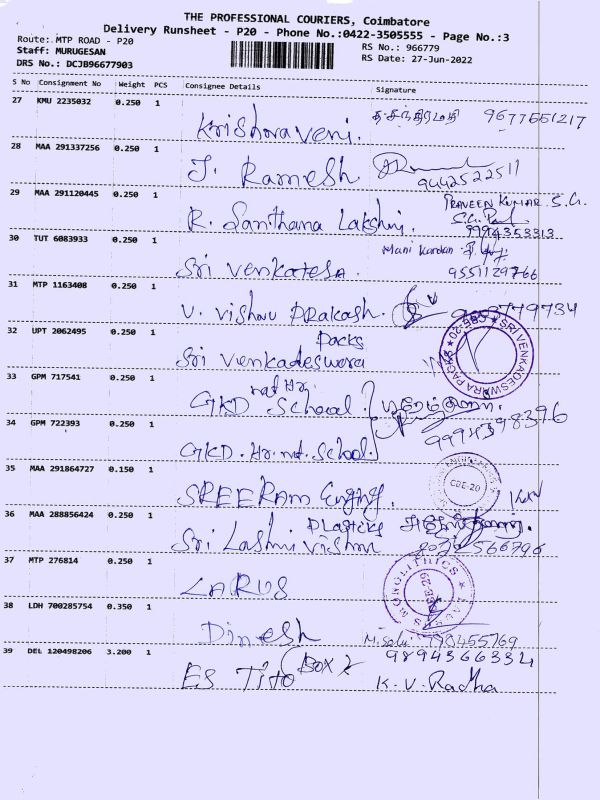 THE PROFESSIONAL COURIERS, Coimbatore
Delivery Runsheet - P20 - Phone No.:0422-3505555 - Page No.:3
Route: MTP ROAD - P20
RS No.: 966779
Staff: MURUGESAN
RS Date: 27-Jun-2022
DRS No.: DCJB96677903
S No Consignment No Weight PCS Consignee Details Signature
27 KMU 2235032 0.250 1 Krishnaveni. 9677661217
28 MAA 291337256 0.250 1 J. Ramesh. 9442522511
29 MAA 291120445 0.250 1 R. Santhana Lakshmi. PRAVEEN KUMAR. S.G.
9994353313
30 TUT 6083933 0.250 1 Sri Venkatesa. Mani Kandan
9551129766
31 MTP 1163408 0.250 1 V. Vishnu Prakash. 79734
32 UPT 2062495 0.250 1 Sri Venkadeswara Packs
SRI VENKADESWARA PACKS ★ CBE-20 ★
33 GPM 717541 0.250 1 GKD mat Hr. School.
34 GPM 722393 0.250 1 GKD. Hr. mt. School.
35 MAA 291864727 0.150 1 SREERAM Enging.
CBE-20
36 MAA 288856424 0.250 1 Sri Lashmi Vishnu Plasticks
37 MTP 276814 0.250 1 LARUS
38 LDH 700285754 0.350 1 Dinesh
39 DEL 120498206 3.200 1 ES Tito (Box 2 9894366334
K. V. Radha